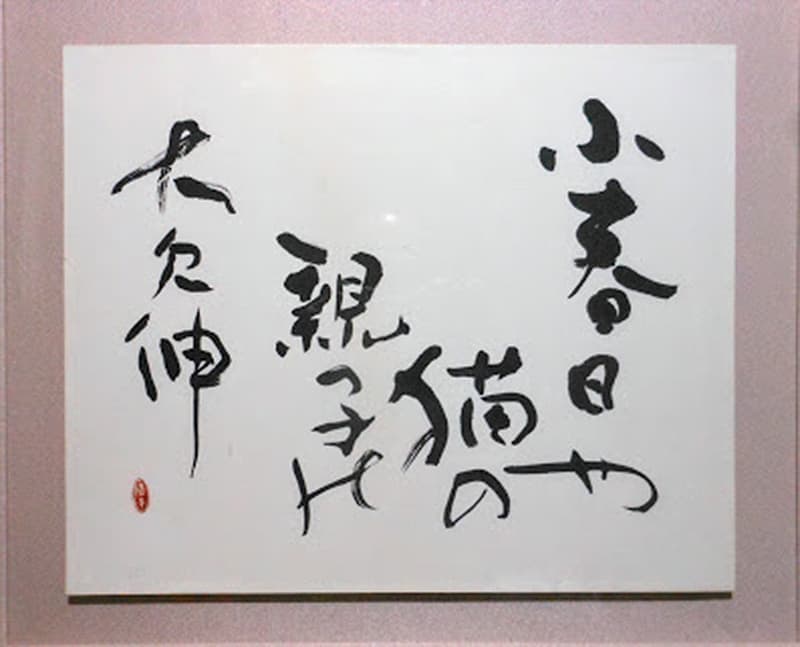 小春日や
猫の
親子の
大欠伸